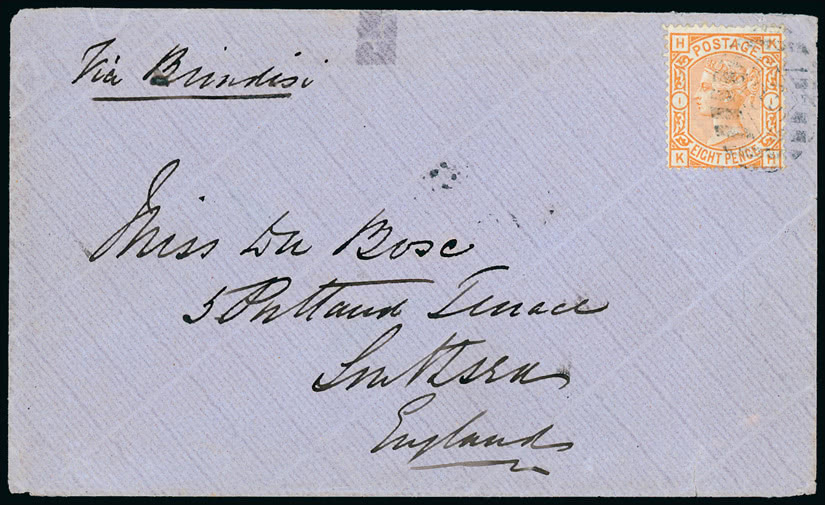 Via Brindisi
H K
POSTAGE
1 1
EIGHT PENCE
K H
Miss Du Bosc
5 Portland Terrace
Southsea
England